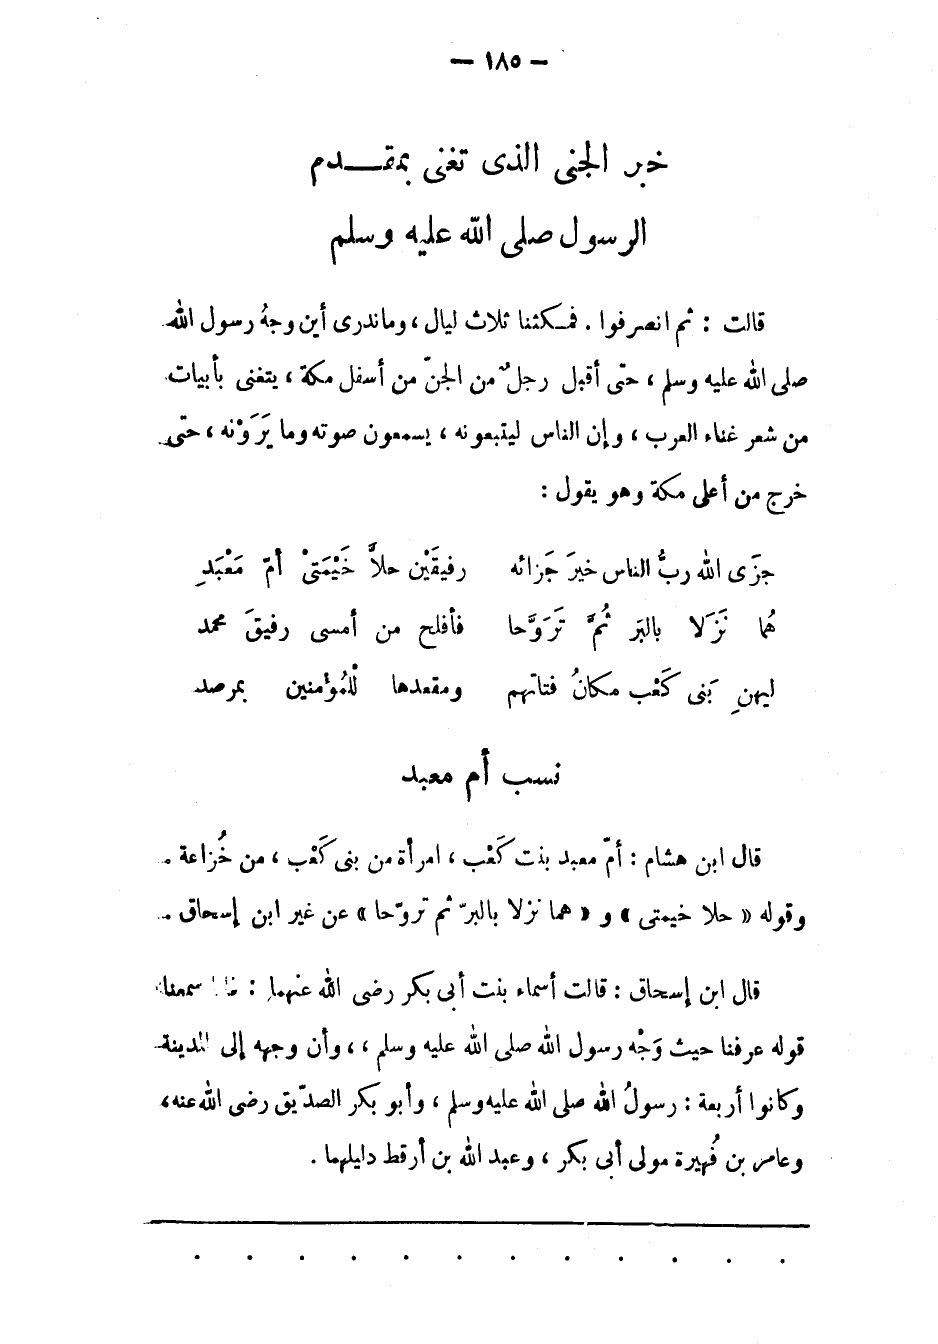 — ١٨٥ —
خبر الجنى الذى تغنى بمقـــدم
الرسول صلى الله عليه وسلم
قالت : ثم انصرفوا . فمـكثنا ثلاث ليال ، وماندرى أين وجهُ رسول الله
صلى الله عليه وسلم ، حتّى أقبل رجلٌ من الجنّ من أسفل مكة ، يتغنى بأبيات
من شعر غناء العرب ، وإن الناس ليتبعونه ، يسمعون صوته وما يَرَوْنه ، حتى
خرج من أعلى مكة وهو يقول :
جزَى الله ربُّ الناس خيرَ جَزائه رفيقَيْن حلاَّ خَيْمَتىْ أمّ مَعْبَدِ
هُما نَزَلا بالبَر ثُمَّ تَرَوَّحا فأفلح من أمسى رفيقَ محمد
ليهنِ بَنى كَعْب مكانُ فتاتهم ومقعدها لْلُمؤمنين بمرصد
نسب أم معبد
قال ابن هشام : أمّ معبد بنت كَعْب ، امرأة من بنى كَعْب ، من خُزاعة .
وقوله « حلا خيمتى » و « هما نزلا بالبرّ ثم تروّحا » عن غير ابن إسحاق .
قال ابن إسحاق : قالت أسماء بنت أبى بكر رضى الله عنهما : سمعنا
قوله عرفنا حيث وَجْه رسول الله صلى الله عليه وسلم ، ، وأن وجهه إلى المدينة
وكانوا أربعة : رسولُ الله صلى الله عليه وسلم ، وأبو بكر الصدّيق رضى الله عنه ،
وعامر بن فُهيرة مولى أبى بكر ، وعبد الله بن أرقط دليلهما .
. . . . . . . . . . . .